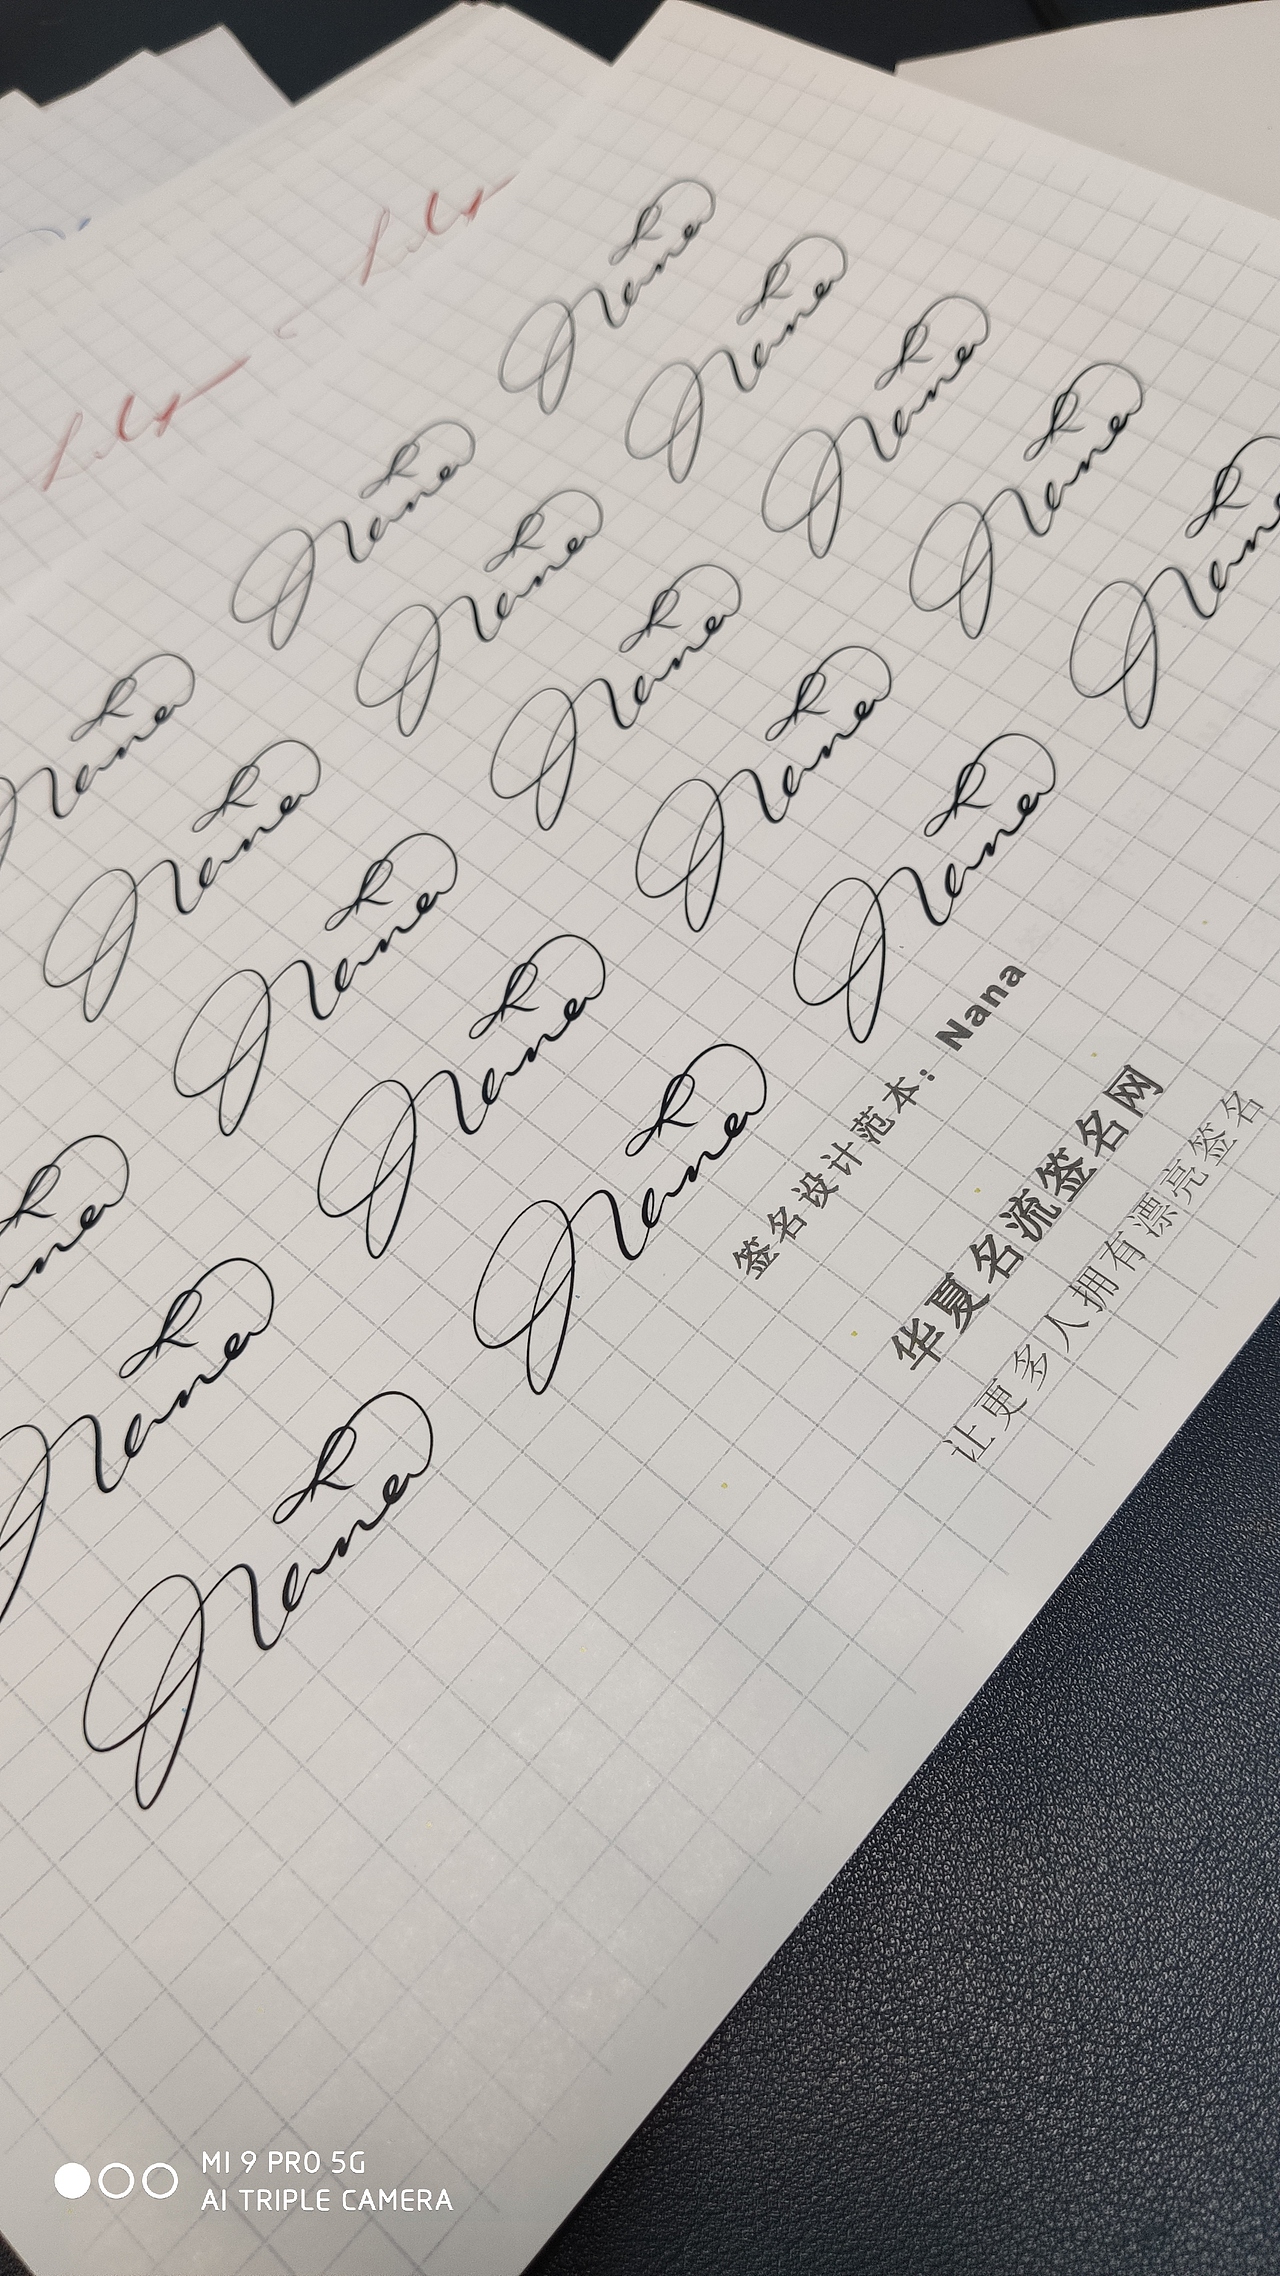 Nana Nana Nana
Nana Nana Nana
Nana Nana Nana
Nana Nana Nana Nana
Nana Nana Nana
签名设计范本：Nana
华夏名流签名网
让更多人拥有漂亮签名
MI 9 PRO 5G
AI TRIPLE CAMERA